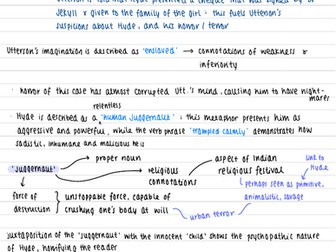 Utterson is told that Hyde presented a cheque that was signed by Dr
Jekyll & given to the family of the girl : this fuels Utterson's
suspicions about Hyde, and his horror / terror
Utterson's imagination is described as 'enslaved' → connotations of weakness &
inferiority
horror of this case has almost corrupted Utt.'s mind, causing him to have night-
mares
relentless
Hyde is described as a 'human Juggernaut' : this metaphor presents him as
aggressive and powerful, while the verb phrase 'trampled calmly' demonstrates how
sadistic, inhumane and malicious he is
proper noun
aspect of Indian
religious festival
link to
Hyde
'Juggernaut'
religious
connotations
perhaps seen as primitive,
animalistic, savage
force of
destruction
unstoppable force, capable of
crushing one's body at will
urban terror
juxtaposition of the 'juggernaut' with the innocent 'child' shows the psychopathic nature
of Hyde, horrifying the reader